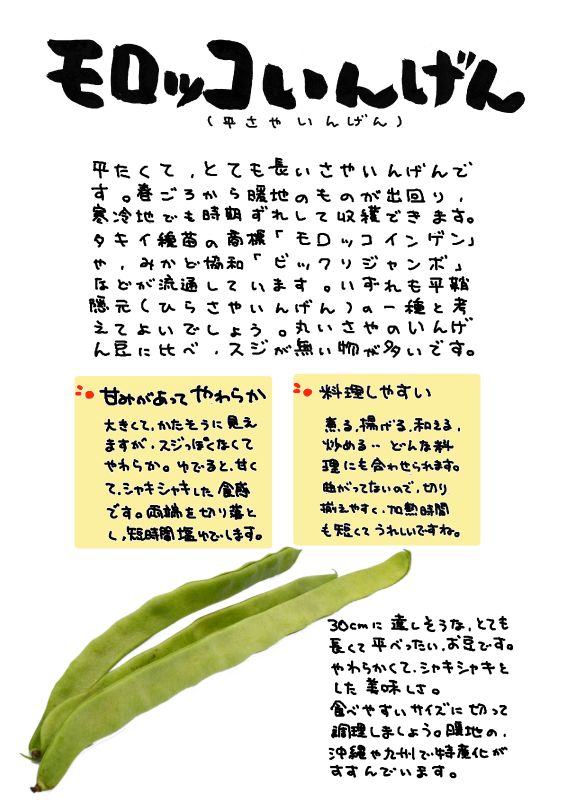 モロッコいんげん
(平さやいんげん)
平たくて、とても長いさやいんげんで
す。春ごろから暖地のものが出回り、
寒冷地でも時期ずれして収穫できます。
タキイ種苗の商標「モロッコインゲン」
や、みかど協和「ビックリジャンボ」
などが流通しています。いずれも平鞘
隠元(ひらさやいんげん)の一種と考
えてよいでしょう。丸いさやのいんげ
ん豆に比べ、スジが無い物が多いです。
甘みがあってやわらか
大きくて、かたそうに見え
ますが、スジっぽくなくて
やわらか。ゆでると、甘く
て、シャキシャキした食感
です。両端を切り落と
し、短時間塩ゆでします。
料理しやすい
煮る、揚げる、和える、
炒める‥どんな料
理にも合わせられます。
曲がってないので、切り
揃えやすく、加熱時間
も短くてうれしいですね。
30cmに達しそうな、とても
長くて平べったい、お豆です。
やわらかくて、シャキシャキと
した美味しさ。
食べやすいサイズに切って
調理しましょう。暖地の、
沖縄や九州で特産化が
すすんでいます。